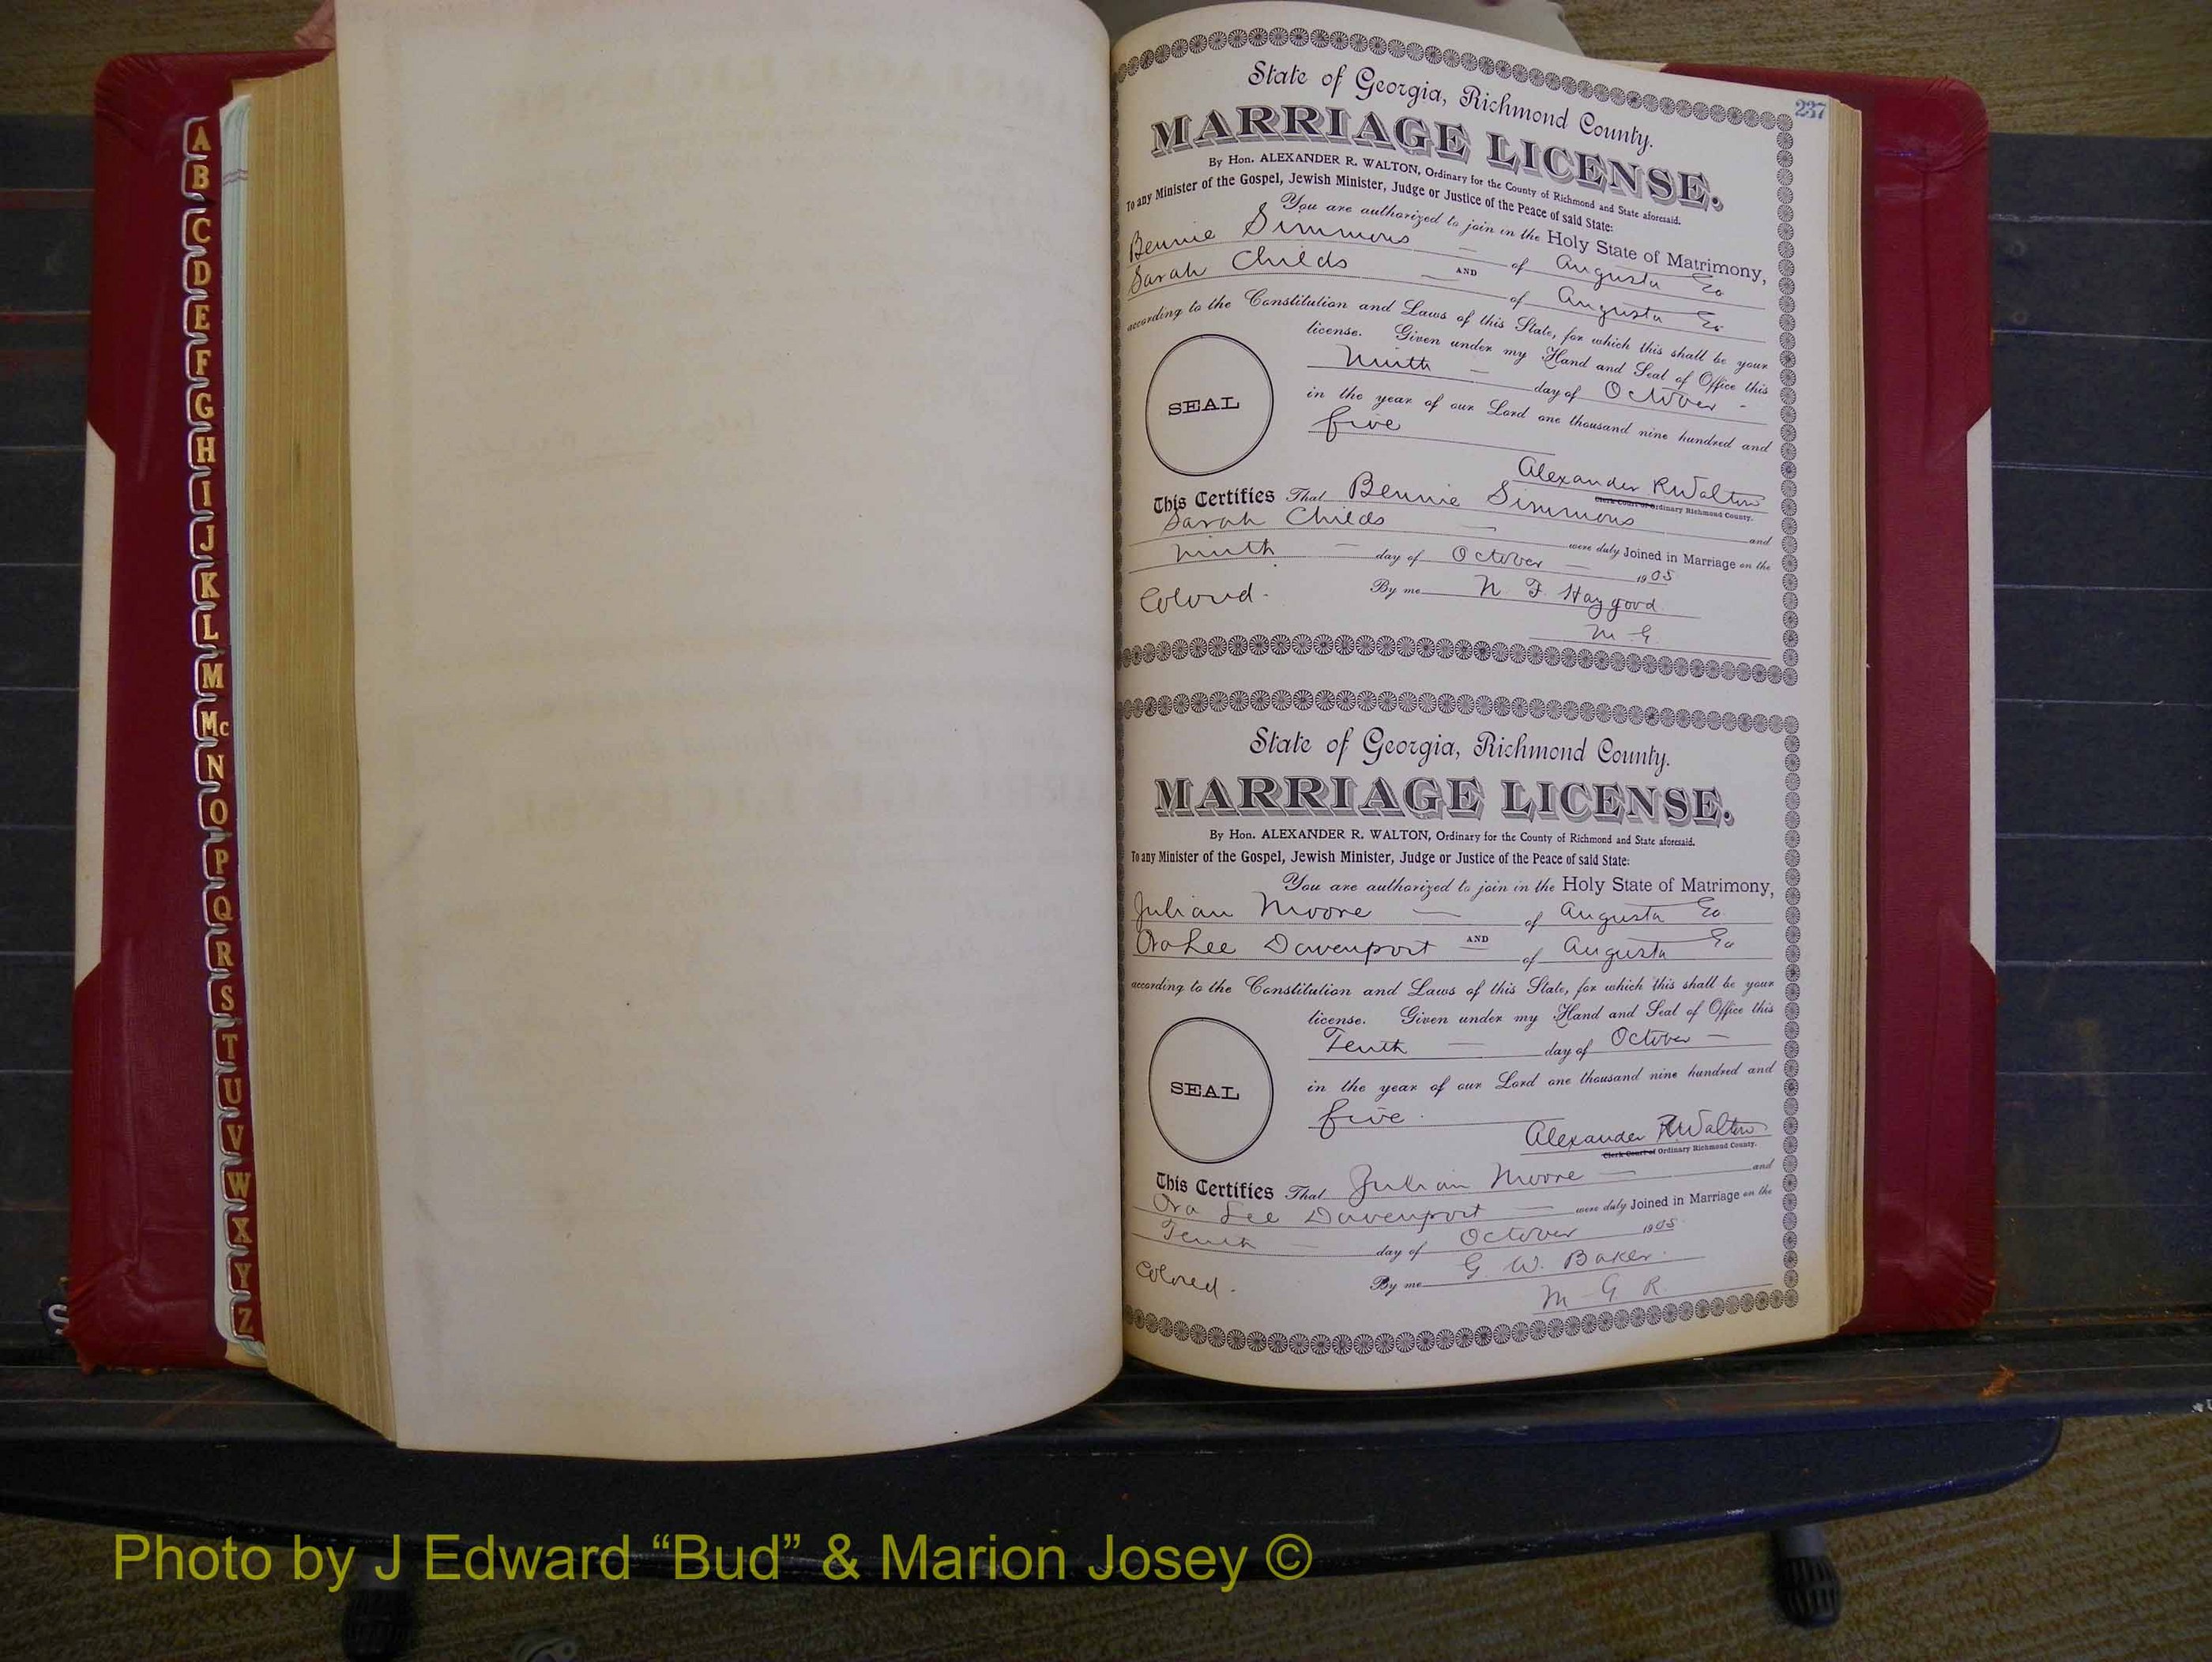 A
B
C
D
E
F
G
H
I
J
K
L
M
Mc
N
O
P
Q
R
S
T
U
V
W
X
Y
Z
237
State of Georgia, Richmond County.
MARRIAGE LICENSE.
By Hon. ALEXANDER R. WALTON, Ordinary for the County of Richmond and State aforesaid.
To any Minister of the Gospel, Jewish Minister, Judge or Justice of the Peace of said State:
You are authorized to join in the Holy State of Matrimony,
Bennie Simmons — of Augusta Ga
AND
Sarah Childs — of Augusta Ga
according to the Constitution and Laws of this State, for which this shall be your
license. Given under my Hand and Seal of Office this
Ninth — day of October -
in the year of our Lord one thousand nine hundred and
five
SEAL
Alexander R Walton
Clerk Court of Ordinary Richmond County.
This Certifies That Bennie Simmons and
Sarah Childs — were duly Joined in Marriage on the
ninth — day of October — 1905
Colored - By me N. F. Haygood
M. G.
State of Georgia, Richmond County.
MARRIAGE LICENSE.
By Hon. ALEXANDER R. WALTON, Ordinary for the County of Richmond and State aforesaid.
To any Minister of the Gospel, Jewish Minister, Judge or Justice of the Peace of said State:
You are authorized to join in the Holy State of Matrimony,
Julian Moore — of Augusta Ga
AND
Ora Lee Davenport — of Augusta Ga
according to the Constitution and Laws of this State, for which this shall be your
license. Given under my Hand and Seal of Office this
Tenth — day of October —
in the year of our Lord one thousand nine hundred and
five
SEAL
Alexander R Walton
Clerk Court of Ordinary Richmond County.
This Certifies That Julian Moore — and
Ora Lee Davenport — were duly Joined in Marriage on the
Tenth — day of October 1905
Colored - By me G. W. Baker
M G R.
Photo by J Edward “Bud” & Marion Josey ©